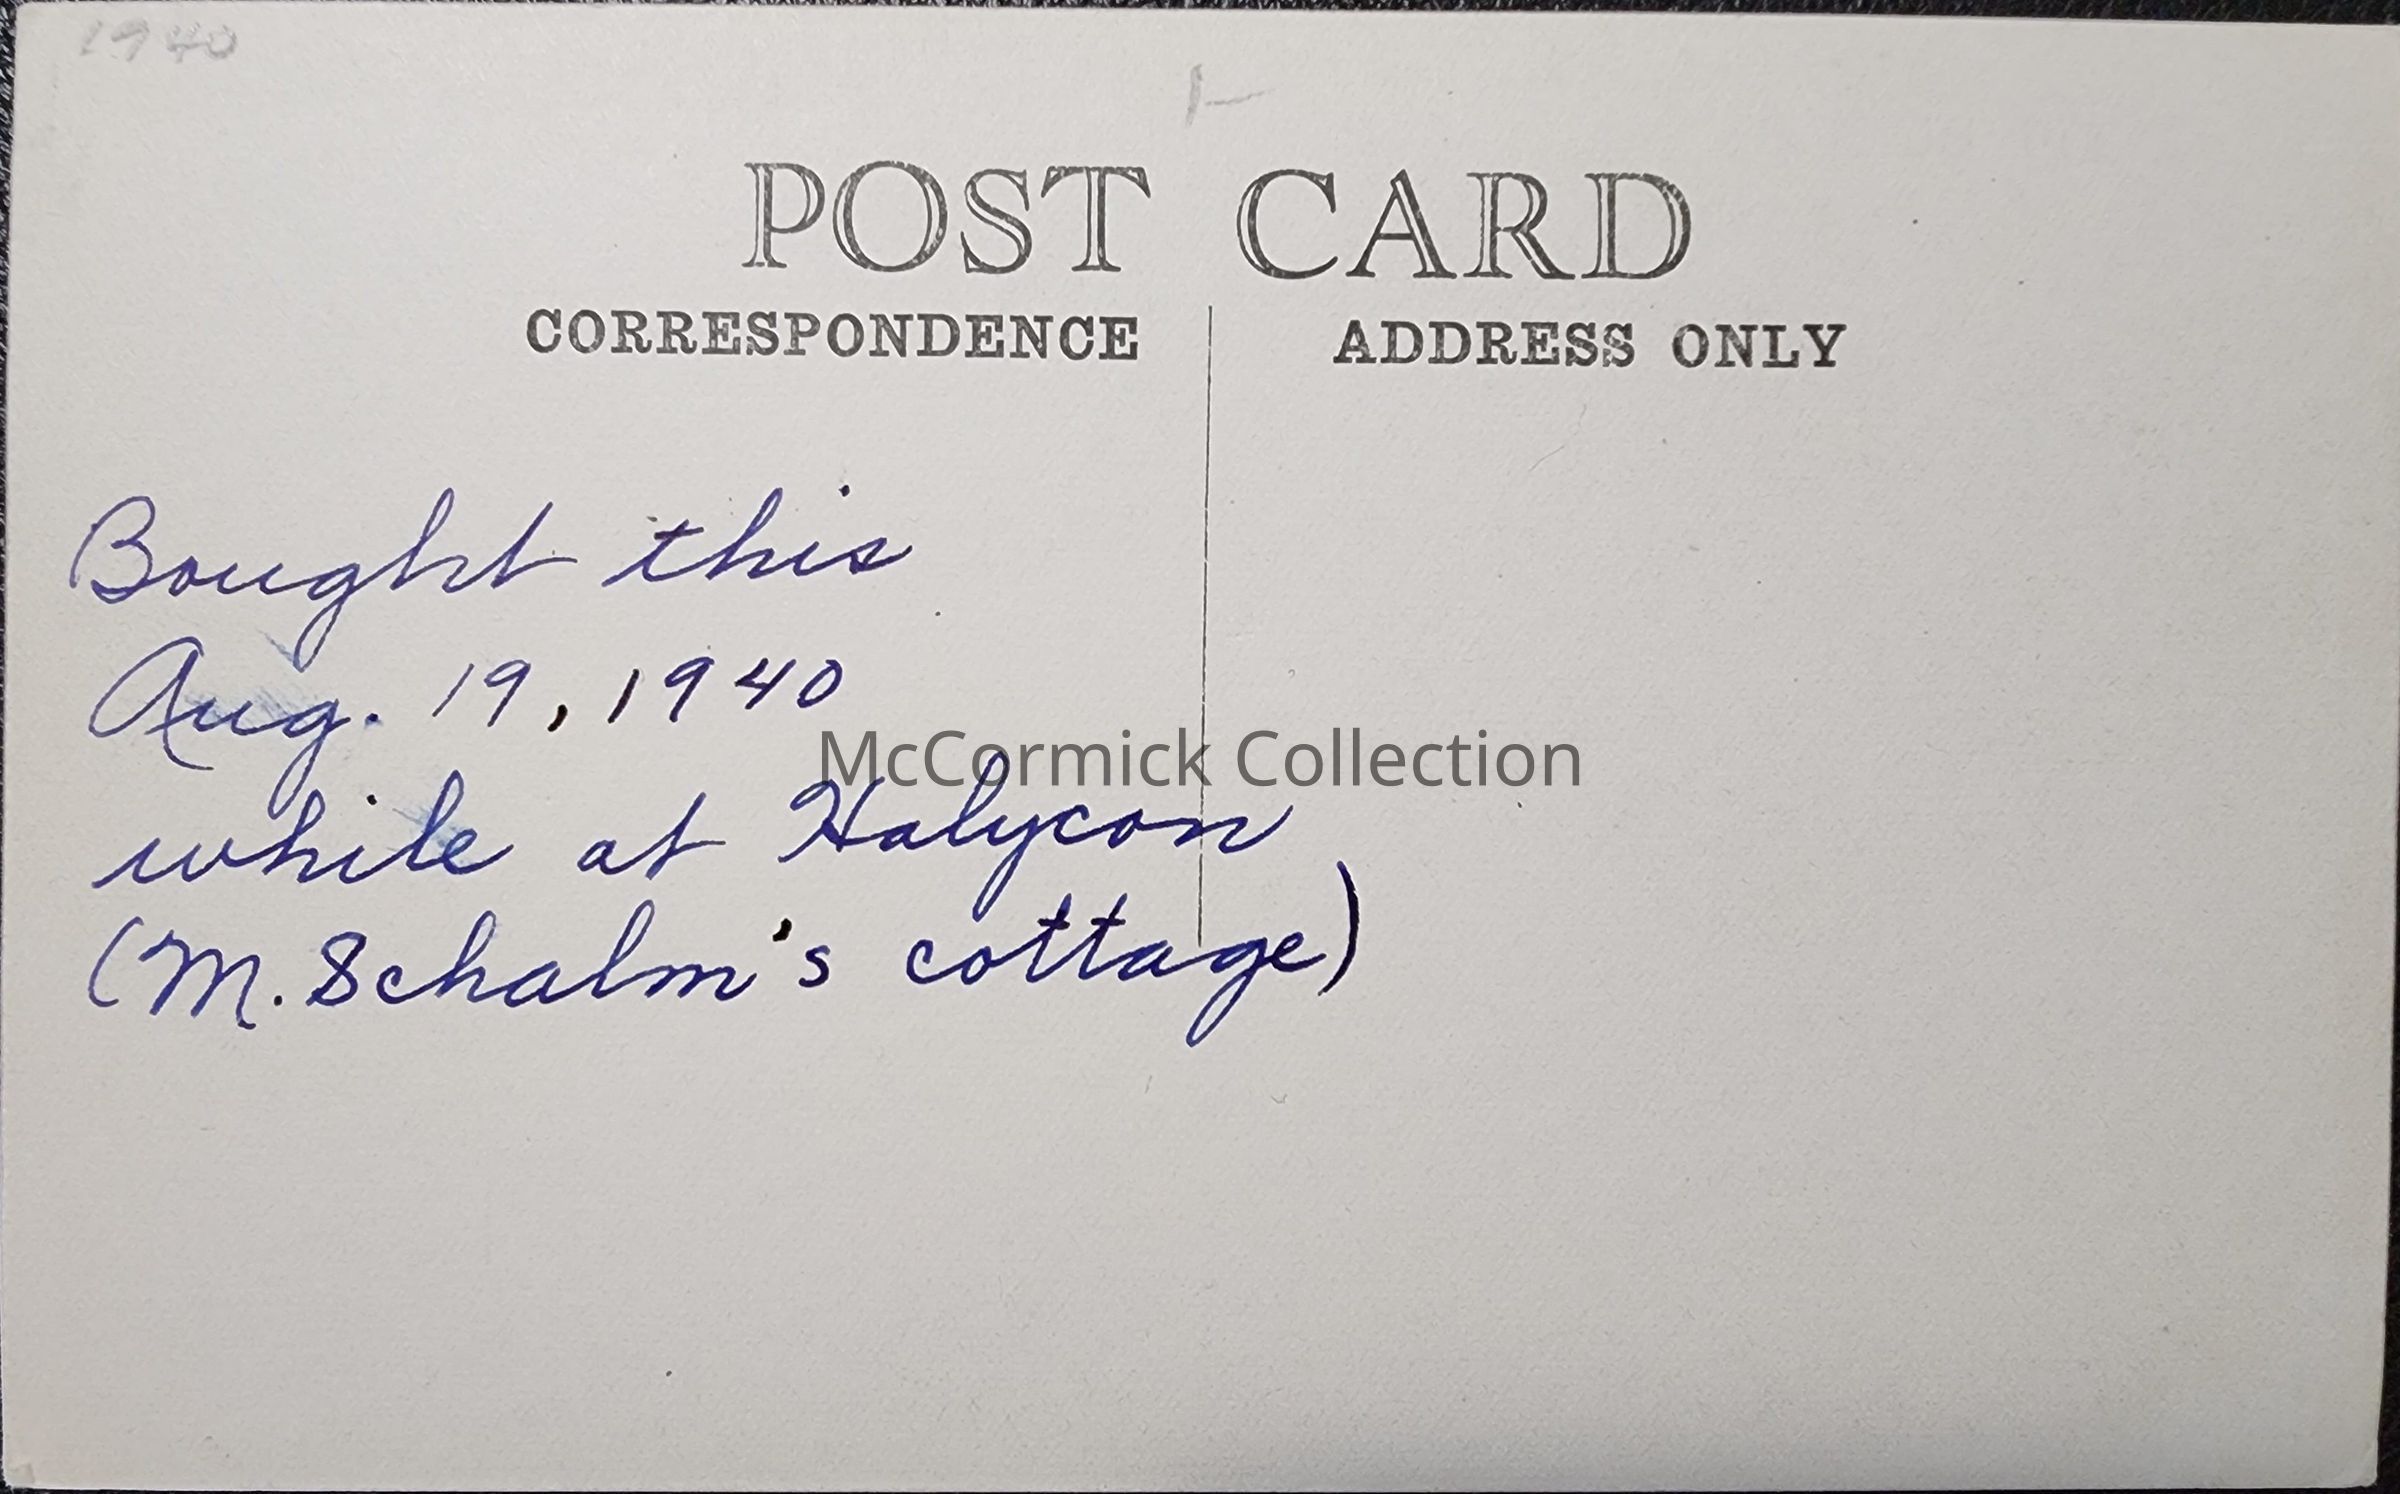 1940
1-
POST CARD
CORRESPONDENCE
ADDRESS ONLY
Bought this
Aug. 19, 1940
McCormick Collection
while at Halycon
(M. Schalm's cottage)